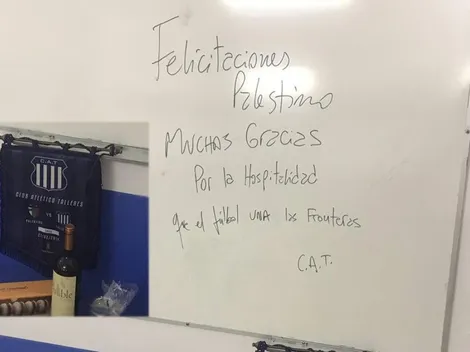 Felicitaciones
Palestino
Muchas Gracias
Por la Hospitalidad
que el fútbol UNA las Fronteras
C.A.T.
C.A.T
CLUB ATLETICO TALLERES
VS